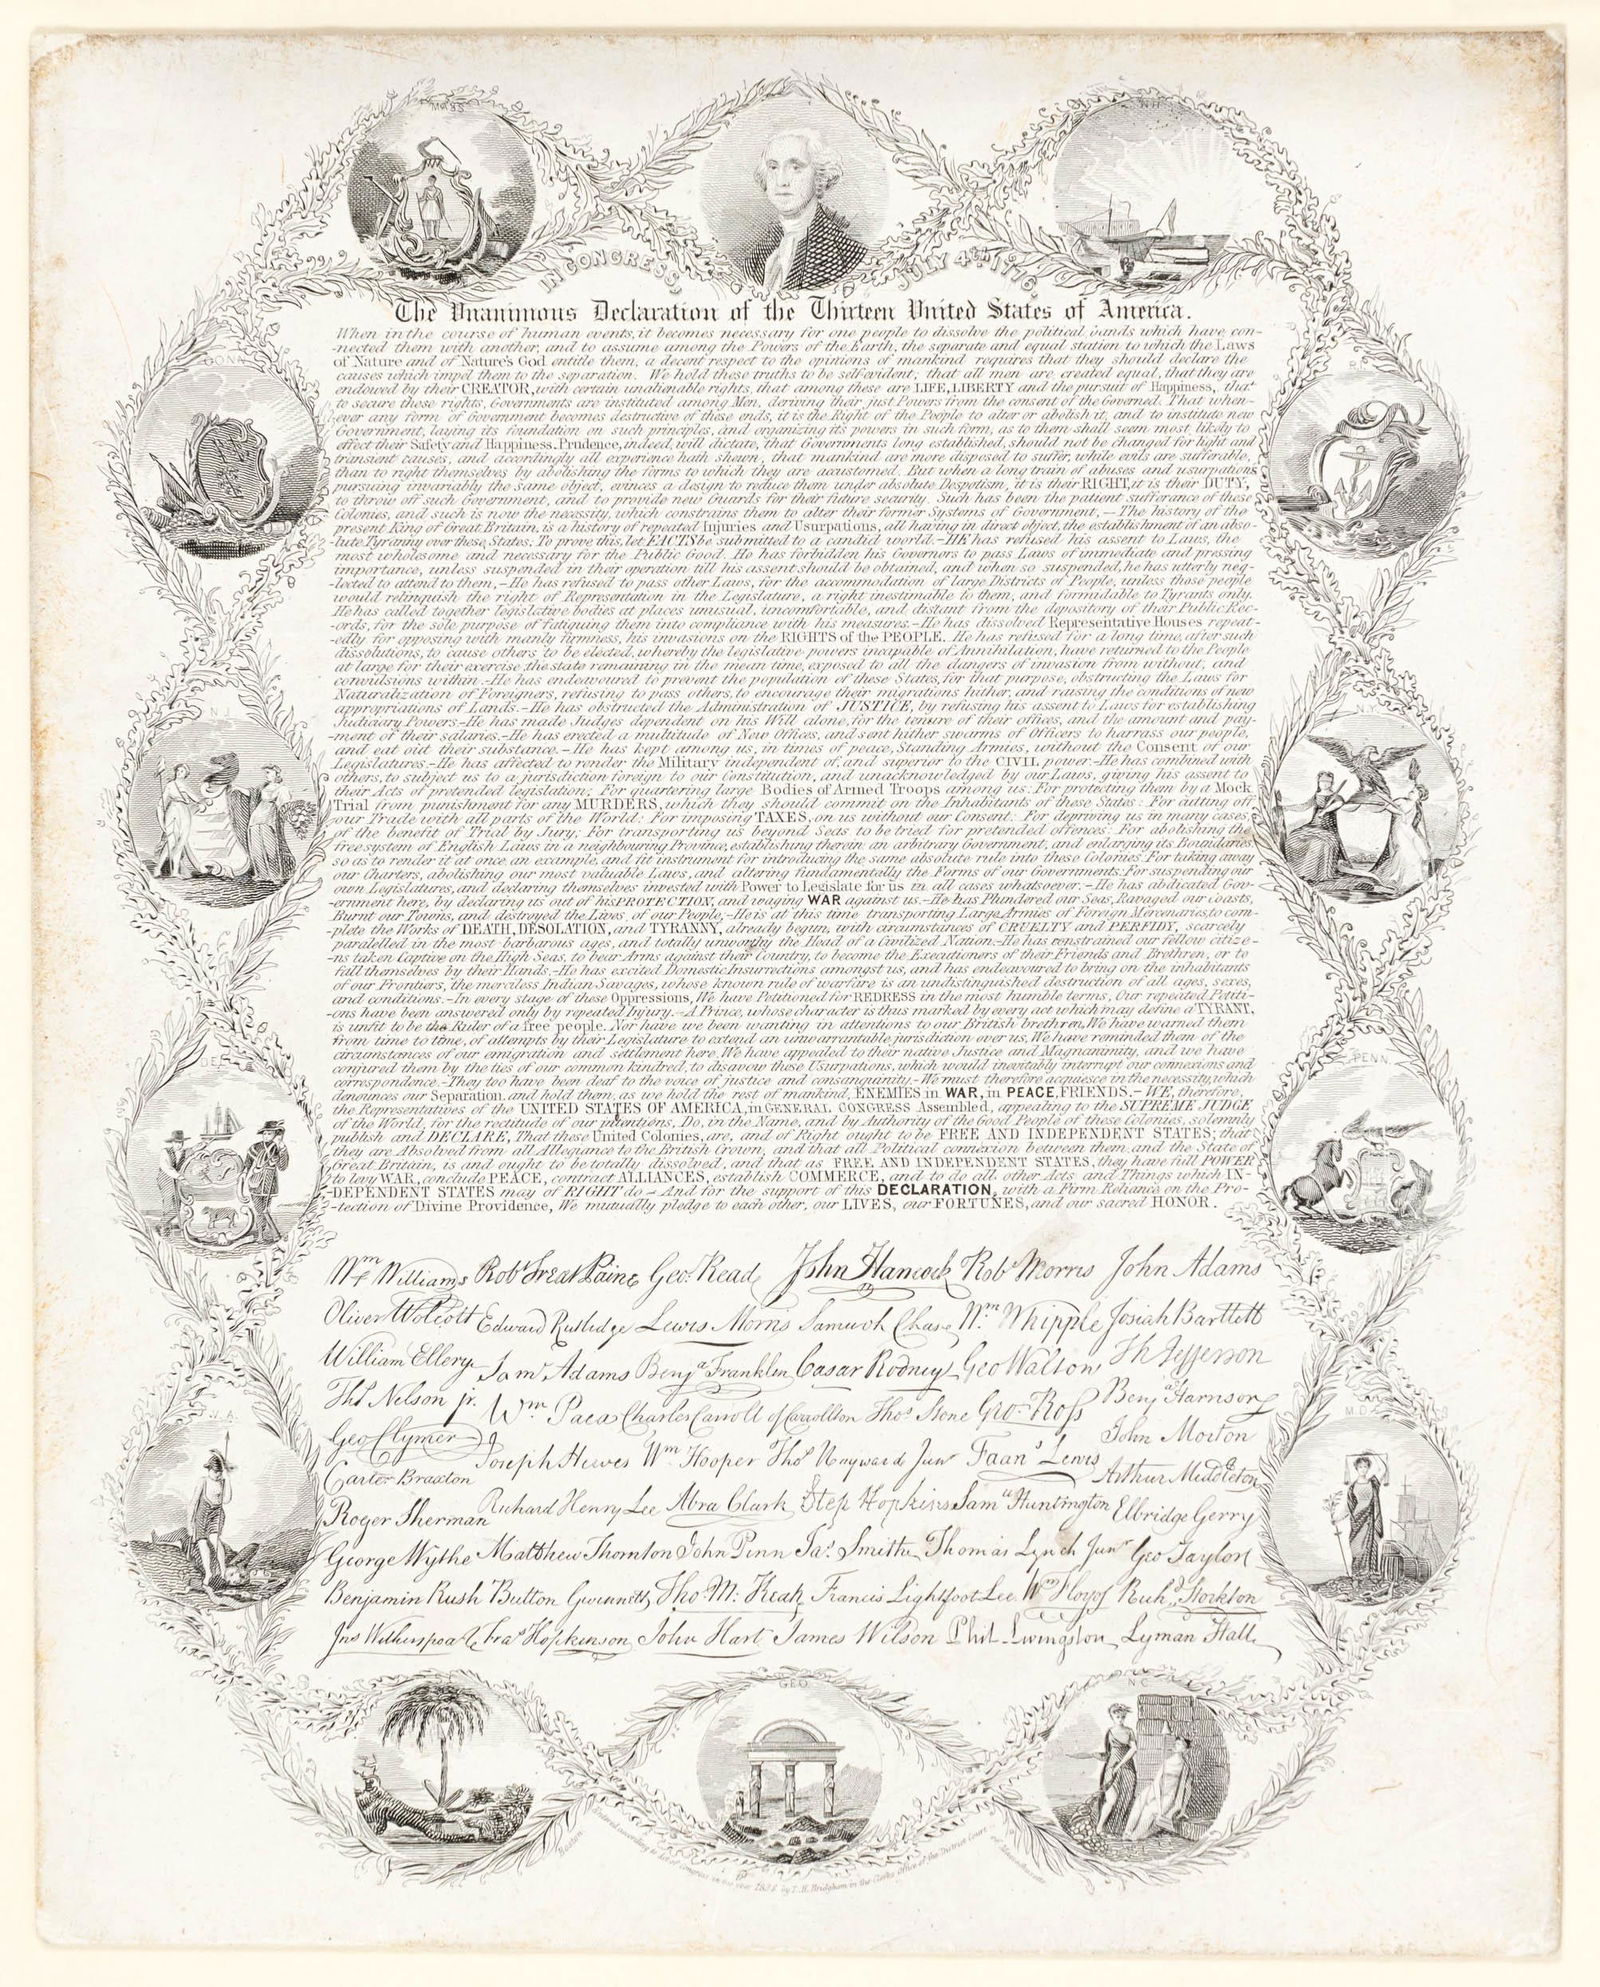 MASS
N.H.
IN CONGRESS JULY 4th 1776
The Unanimous Declaration of the Thirteen United States of America.
When in the course of human events, it becomes necessary for one people to dissolve the political bands which have con-
-nected them with another, and to assume among the Powers of the Earth, the separate and equal station to which the Laws
of Nature and of Nature's God entitle them, a decent respect to the opinions of mankind requires that they should declare the
causes which impel them to the separation. We hold these truths to be self evident; that all men are created equal, that they are
endowed by their CREATOR, with certain unalienable rights, that among these are LIFE, LIBERTY and the pursuit of Happiness, that
to secure these rights, Governments are instituted among Men, deriving their just Powers from the consent of the Governed. That when-
ever any form of Government becomes destructive of these ends, it is the Right of the People to alter or abolish it, and to institute new
Government, laying its foundation on such principles, and organizing its powers in such form, as to them shall seem most likely to
effect their Safety and Happiness. Prudence, indeed, will dictate, that Governments long established, should not be changed for light and
transient causes; and accordingly all experience hath shown, that mankind are more disposed to suffer, while evils are sufferable,
than to right themselves by abolishing the forms to which they are accustomed. But when a long train of abuses and usurpations
pursuing invariably the same object, evinces a design to reduce them under absolute Despotism, it is their RIGHT, it is their DUTY,
to throw off such Government, and to provide new Guards for their future security. Such has been the patient sufferance of these
Colonies, and such is now the necessity, which constrains them to alter their former Systems of Government,—The history of the
present King of Great Britain, is a history of repeated Injuries and Usurpations, all having in direct object, the establishment of an abso-
-lute Tyranny over these States. To prove this, let FACTS be submitted to a candid world.—HE has refused his assent to Laws, the
most wholesome and necessary for the Public Good. He has forbidden his Governors to pass Laws of immediate and pressing
importance, unless suspended in their operation till his assent should be obtained, and when so suspended, he has utterly neg-
-lected to attend to them,—He has refused to pass other Laws, for the accommodation of large Districts of People, unless those people
would relinquish the right of Representation in the Legislature, a right inestimable to them, and formidable to Tyrants only.
He has called together legislative bodies at places unusual, uncomfortable, and distant from the depository of their Public Rec-
-ords, for the sole purpose of fatiguing them into compliance with his measures.—He has dissolved Representative Houses repeat-
-edly for opposing with manly firmness, his invasions on the RIGHTS of the PEOPLE. He has refused for a long time, after such
dissolutions, to cause others to be elected, whereby the legislative powers incapable of Annihilation, have returned to the People
at large for their exercise, the state remaining in the mean time, exposed to all the dangers of invasion from without, and
convulsions within.—He has endeavoured to prevent the population of these States, for that purpose, obstructing the Laws for
Naturalization of Foreigners, refusing to pass others, to encourage their migrations hither, and raising the conditions of new
appropriations of Lands.—He has obstructed the Administration of JUSTICE, by refusing his assent to Laws for establishing
Judiciary Powers—He has made Judges dependent on his Will alone, for the tenure of their offices, and the amount and pay-
-ment of their salaries.—He has erected a multitude of New Offices, and sent hither swarms of Officers to harrass our people,
and eat out their substance.—He has kept among us, in times of peace, Standing Armies, without the Consent of our
Legislatures.—He has affected to render the Military independent of, and superior to the CIVIL power.—He has combined with
others, to subject us to a jurisdiction foreign to our Constitution, and unacknowledged by our Laws, giving his assent to
their Acts of pretended legislation; For quartering large Bodies of Armed Troops among us: For protecting them by a Mock
Trial from punishment for any MURDERS, which they should commit on the Inhabitants of these States: For cutting off
our Trade with all parts of the World: For imposing TAXES, on us without our Consent: For depriving us in many cases,
of the benefit of Trial by Jury; For transporting us beyond Seas to be tried for pretended offences: For abolishing the
free system of English Laws in a neighbouring Province, establishing therein an arbitrary Government, and enlarging its Boundaries
so as to render it at once, an example, and fit instrument for introducing the same absolute rule into these Colonies: For taking away
our Charters, abolishing our most valuable Laws, and altering fundamentally the Forms of our Governments: For suspending our
own Legislatures, and declaring themselves invested with Power to Legislate for us in all cases whatsoever.—He has abdicated Gov-
-ernment here, by declaring us out of his PROTECTION, and waging WAR against us.—He has Plundered our Seas, Ravaged our Coasts,
Burnt our Towns, and destroyed the Lives, of our People,—He is at this time transporting Large Armies of Foreign Mercenaries, to com-
-plete the Works of DEATH, DESOLATION, and TYRANNY, already begun, with circumstances of CRUELTY and PERFIDY, scarcely
paralelled in the most barbarous ages, and totally unworthy the Head of a Civilized Nation.—He has constrained our fellow citize-
-ns taken Captive on the High Seas, to bear Arms against their Country, to become the Executioners of their Friends and Brethren, or to
fall themselves by their Hands.—He has excited Domestic Insurrections amongst us, and has endeavoured to bring on the inhabitants
of our Frontiers, the merciless Indian Savages, whose known rule of warfare is an undistinguished destruction of all ages, sexes,
and conditions.—In every stage of these Oppressions, We have Petitioned for REDRESS in the most humble terms, Our repeated Petiti-
-ons have been answered only by repeated Injury.—A Prince, whose character is thus marked by every act which may define a TYRANT,
is unfit to be the Ruler of a free people. Nor have we been wanting in attentions to our British brethren, We have warned them
from time to time, of attempts by their Legislature to extend an unwarrantable jurisdiction over us, We have reminded them of the
circumstances of our emigration and settlement here, We have appealed to their native Justice and Magnanimity, and we have
conjured them by the ties of our common kindred, to disavow these Usurpations, which would inevitably interrupt our connexions and
correspondence.—They too have been deaf to the voice of justice and consanguinity.—We must therefore acquiesce in the necessity, which
denounces our Separation, and hold them, as we hold the rest of mankind, ENEMIES in WAR, in PEACE, FRIENDS.—WE, therefore,
the Representatives of the UNITED STATES OF AMERICA, in GENERAL CONGRESS Assembled, appealing to the SUPREME JUDGE
of the World, for the rectitude of our intentions, Do, in the Name, and by Authority of the Good People of these Colonies, solemnly
publish and DECLARE, That these United Colonies, are, and of Right ought to be FREE AND INDEPENDENT STATES; that
they are Absolved from all Allegiance to the British Crown, and that all Political connexion between them and the State of
Great Britain, is and ought to be totally dissolved, and that as FREE AND INDEPENDENT STATES, they have full POWER
to levy WAR, conclude PEACE, contract ALLIANCES, establish COMMERCE, and to do all other Acts and Things which IN-
-DEPENDENT STATES may of RIGHT do—And for the support of this DECLARATION, with a Firm Reliance on the Pro-
-tection of Divine Providence, We mutually pledge to each other, our LIVES, our FORTUNES, and our sacred HONOR.
CONN
R.I.
N.J.
N.Y.
DEL
PENN
VA.
MD.
Wm Williams Robt Treat Paine Geo. Read John Hancock Robt Morris John Adams
Oliver Wolcott Edward Rutledge Lewis Morris Samuel Chase Wm Whipple Josiah Bartlett
William Ellery Saml Adams Benja Franklin Cæsar Rodney Geo Walton Th Jefferson
Thos Nelson jr. Wm Paca Charles Carroll of Carrollton Thos Stone Geo. Ross Benja Harrison
Geo Clymer Joseph Hewes Wm Hooper Thos Hayward Junr Frans Lewis John Morton
Carter Braxton Arthur Middleton
Roger Sherman Richard Henry Lee Abra Clark Step Hopkins Saml Huntington Elbridge Gerry
George Wythe Matthew Thornton John Penn Jas. Smith Thomas Lynch Junr Geo Taylor
Benjamin Rush Button Gwinnett Tho M: Kean Francis Lightfoot Lee Wm Floyd Richd Stockton
Jno Witherspoon Fras Hopkinson John Hart James Wilson Phil. Livingston Lyman Hall
GEO
N.C.
Boston Entered according to Act of Congress in the year by T. H. Bridgham in the Clerks Office of the District Court of Massachusetts